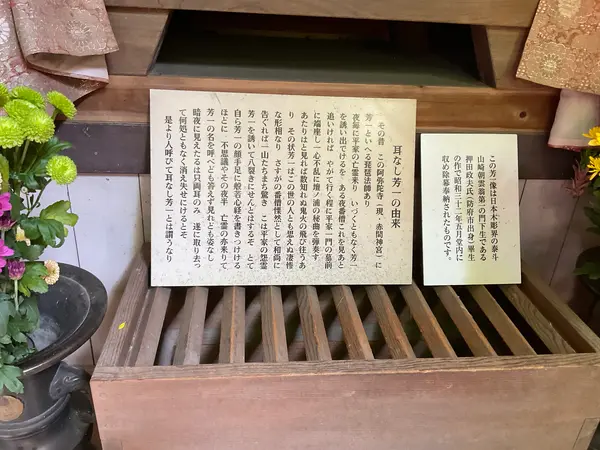 耳なし芳一の由来
その昔 この阿弥陀寺（現、赤間神宮）に
芳一といへる琵琶法師あり
夜毎に平家の亡霊来り いづくともなく芳一
を誘い出でけるを ある夜番僧これを見あと
追いければ やがて行く程に平家一門の墓前
に端座し一心不乱に壇ノ浦の秘曲を弾奏す
あたりはと見れば数知れぬ鬼火の飛び住うあ
り その状芳一はこの世の人とも思えぬ凄惨
な形相なり さすがの番僧慄然として和尚に
告ぐれば一山たちまち驚き こは平家の怨霊
芳一を誘いて八裂きにせんとはするぞ とて
自ら芳一の顔手足に般若心経を書きつけける
ほどに 不思議やその夜半 亡霊の亦来りて
芳一の名を呼べども答えず見れども姿なし
暗夜に見えたるは只両耳のみ 遂に取り去っ
て何処ともなく消え失せにけるとぞ
是より人呼びて耳なし芳一とは謂うなり
この芳一像は日本木彫界の泰斗
山崎朝雲翁第一の門下生である
押田政夫氏（防府市出身）畢生
の作で昭和三十二年五月堂内に
収め除幕奉納されたものです。